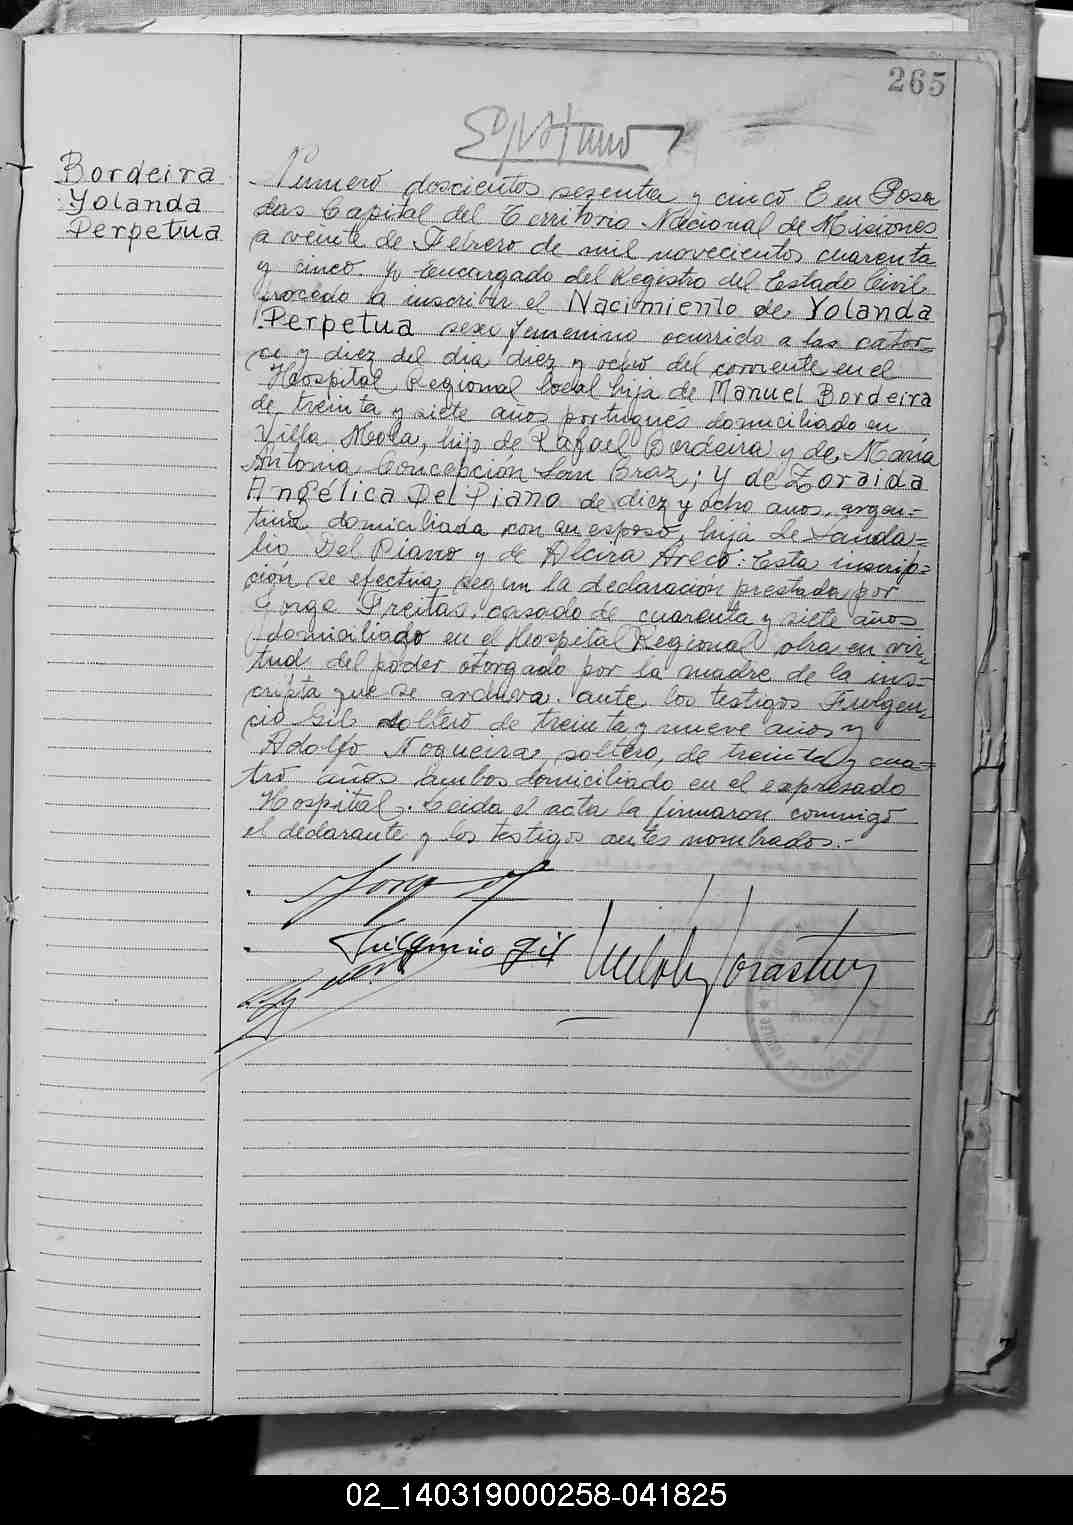 265
Bordeira
Yolanda
Perpetua
Número doscientos sesenta y cinco En Posa
das Capital del Territorio Nacional de Misiones
a veinte de Febrero de mil novecientos cuarenta
y cinco. Yo Encargado del Registro del Estado Civil
procedo a inscribir el Nacimiento de Yolanda
Perpetua sexo femenino ocurrido a las cator-
ce y diez del dia diez y ocho del corriente en el
Hospital Regional local hija de Manuel Bordeira
de treinta y siete años portugués domiciliado en
Villa Mola, hijo de Rafael Bordeira y de Maria
Antonia Concepcion San Braz; y de Zoraida
Angélica Del Piano de diez y ocho anos, argen-
tina domiciliada con su esposo, hija de Vanda=
lio Del Piano y de Alcira Areco: Esta inscrip=
ción se efectúa segun la declaración prestada por
Jorge Freitas, casado de cuarenta y siete años
domiciliado en el Hospital Regional obra en vir-
tud del poder otorgado por la madre de la ins-
cripta que se archiva. ante los testigos Fulgen-
cio Gil soltero de treinta y nueve años y
Adolfo Nogueira, soltero, de treinta y cua=
tro años ambos domiciliado en el expresado
Hospital. Leida el acta la firmaron conmigo
el declarante y los testigos antes nombrados.-
Gil
02_140319000258-041825